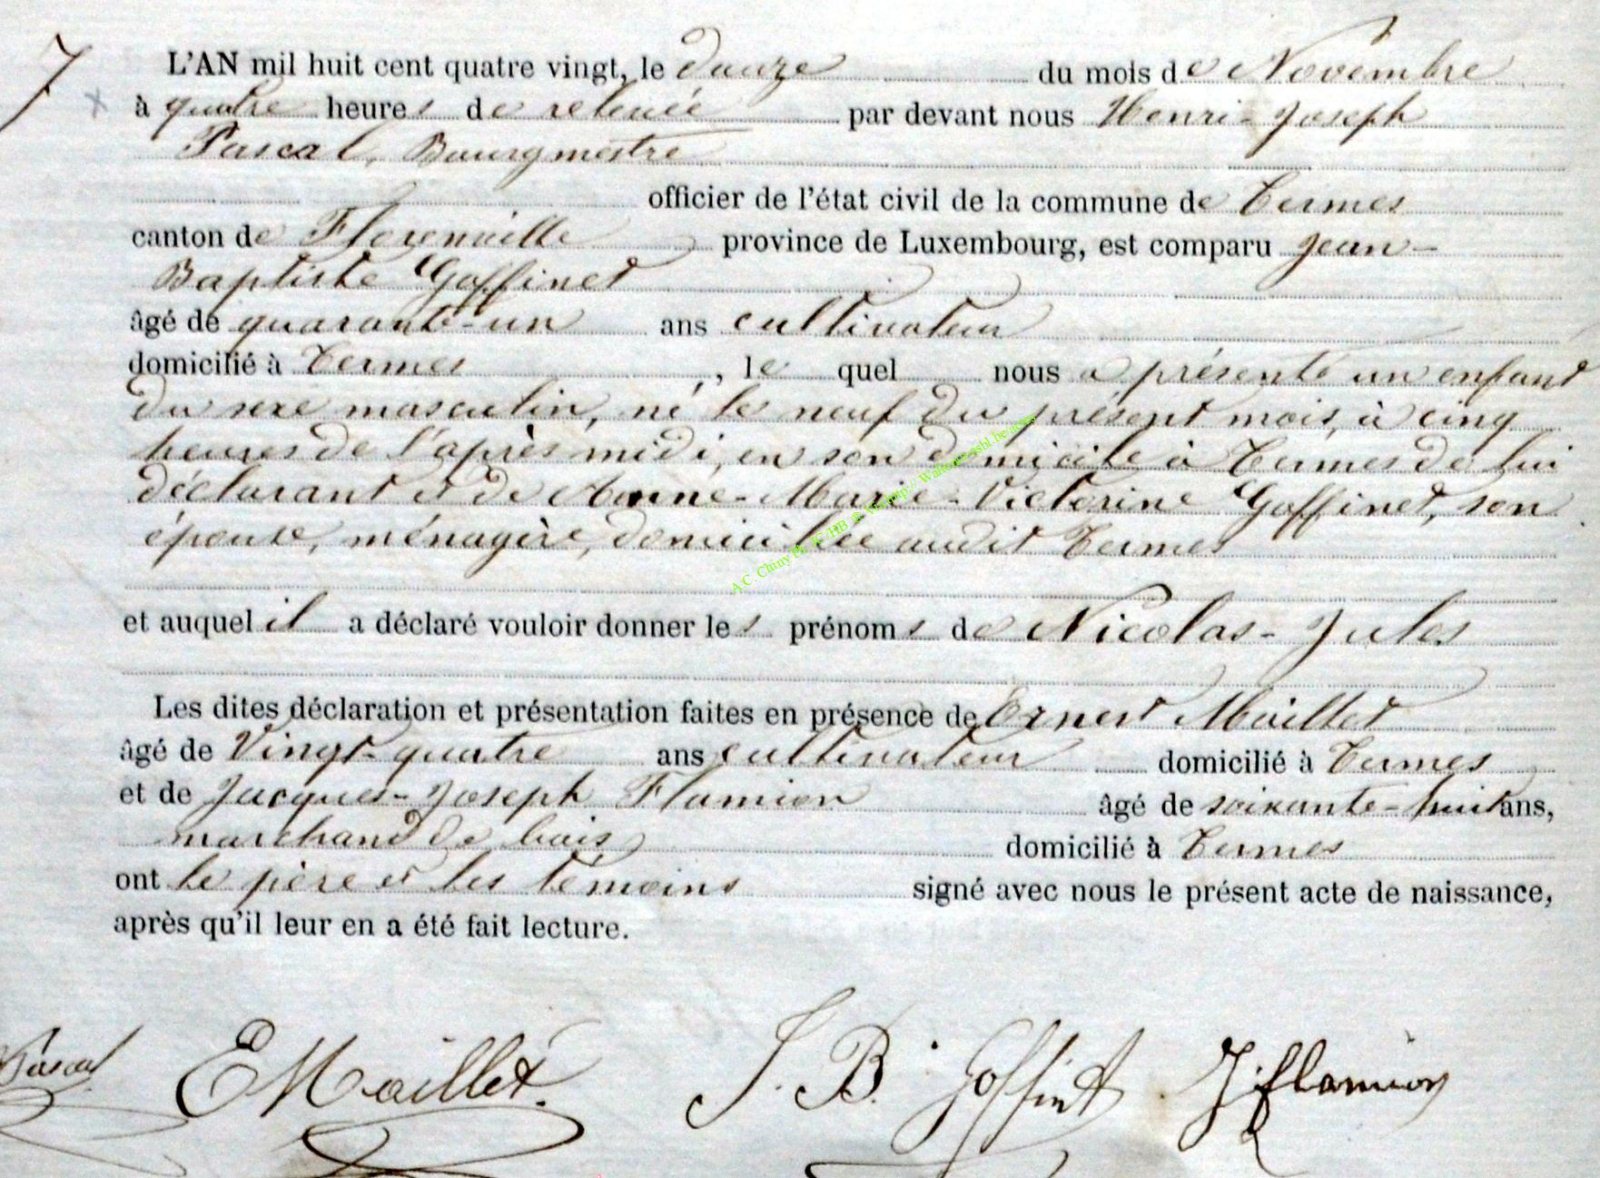 7
L'AN mil huit cent quatre vingt, le douze du mois de Novembre
à quatre heures de relevée par devant nous Henri-Joseph
Pascal, Bourgmestre
officier de l'état civil de la commune de Termes
canton de Florenville province de Luxembourg, est comparu Jean-
Baptiste Goffinet
âgé de quarante-un ans cultivateur
domicilié à Termes, le quel nous a présenté un enfant
du sexe masculin, né le neuf du présent mois, à cinq
heures de l'après midi, en son domicile à Termes de lui
déclarant et de Anne-Marie-Victorine Goffinet, son
épouse, ménagère, domiciliée audit Termes
et auquel il a déclaré vouloir donner les prénoms de Nicolas-Jules
Les dites déclaration et présentation faites en présence de Ernest Maillet
âgé de Vingt-quatre ans cultivateur domicilié à Termes
et de Jacques-Joseph Flamion âgé de soixante-huit ans,
marchand de bois domicilié à Termes
ont le père et les témoins signé avec nous le présent acte de naissance,
après qu'il leur en a été fait lecture.
Pascal EMaillet. J. B. Goffinet J. flamion
A C Chiny